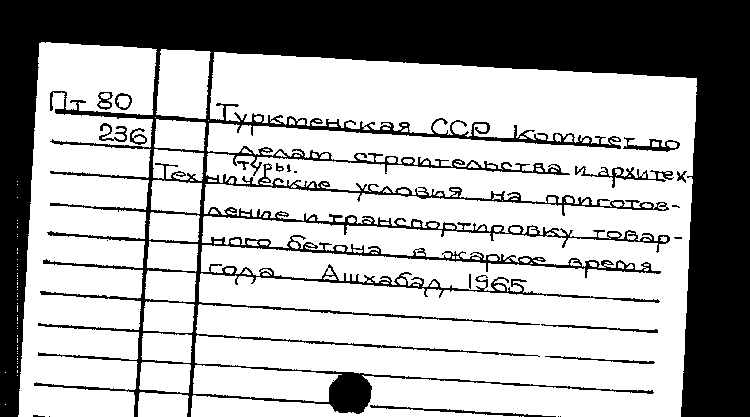 Пт 80
236
Туркменская ССР Комитет по
делам строительства и архитек-
(туры.
Технические условия на приготов-
ление и транспортировку товар-
ного бетона в жаркое время
года. Ашхабад, 1965.